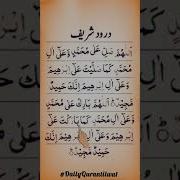 درود شریف
اَللّٰهُمَّ صَلِّ عَلٰى مُحَمَّدٍ وَّعَلٰٓى اٰلِ
مُحَمَّدٍ كَمَا صَلَّيْتَ عَلٰٓى اِبْرٰهِيْمَ
وَعَلٰٓى اٰلِ اِبْرٰهِيْمَ اِنَّكَ حَمِيْدٌ
مَّجِيْدٌ اَللّٰهُمَّ بَارِكْ عَلٰى مُحَمَّدٍ
وَّعَلٰٓى اٰلِ مُحَمَّدٍ كَمَا بَارَكْتَ عَلٰٓى
اِبْرٰهِيْمَ وَعَلٰٓى اٰلِ اِبْرٰهِيْمَ اِنَّكَ
حَمِيْدٌ مَّجِيْدٌ
#DailyQurantilawat